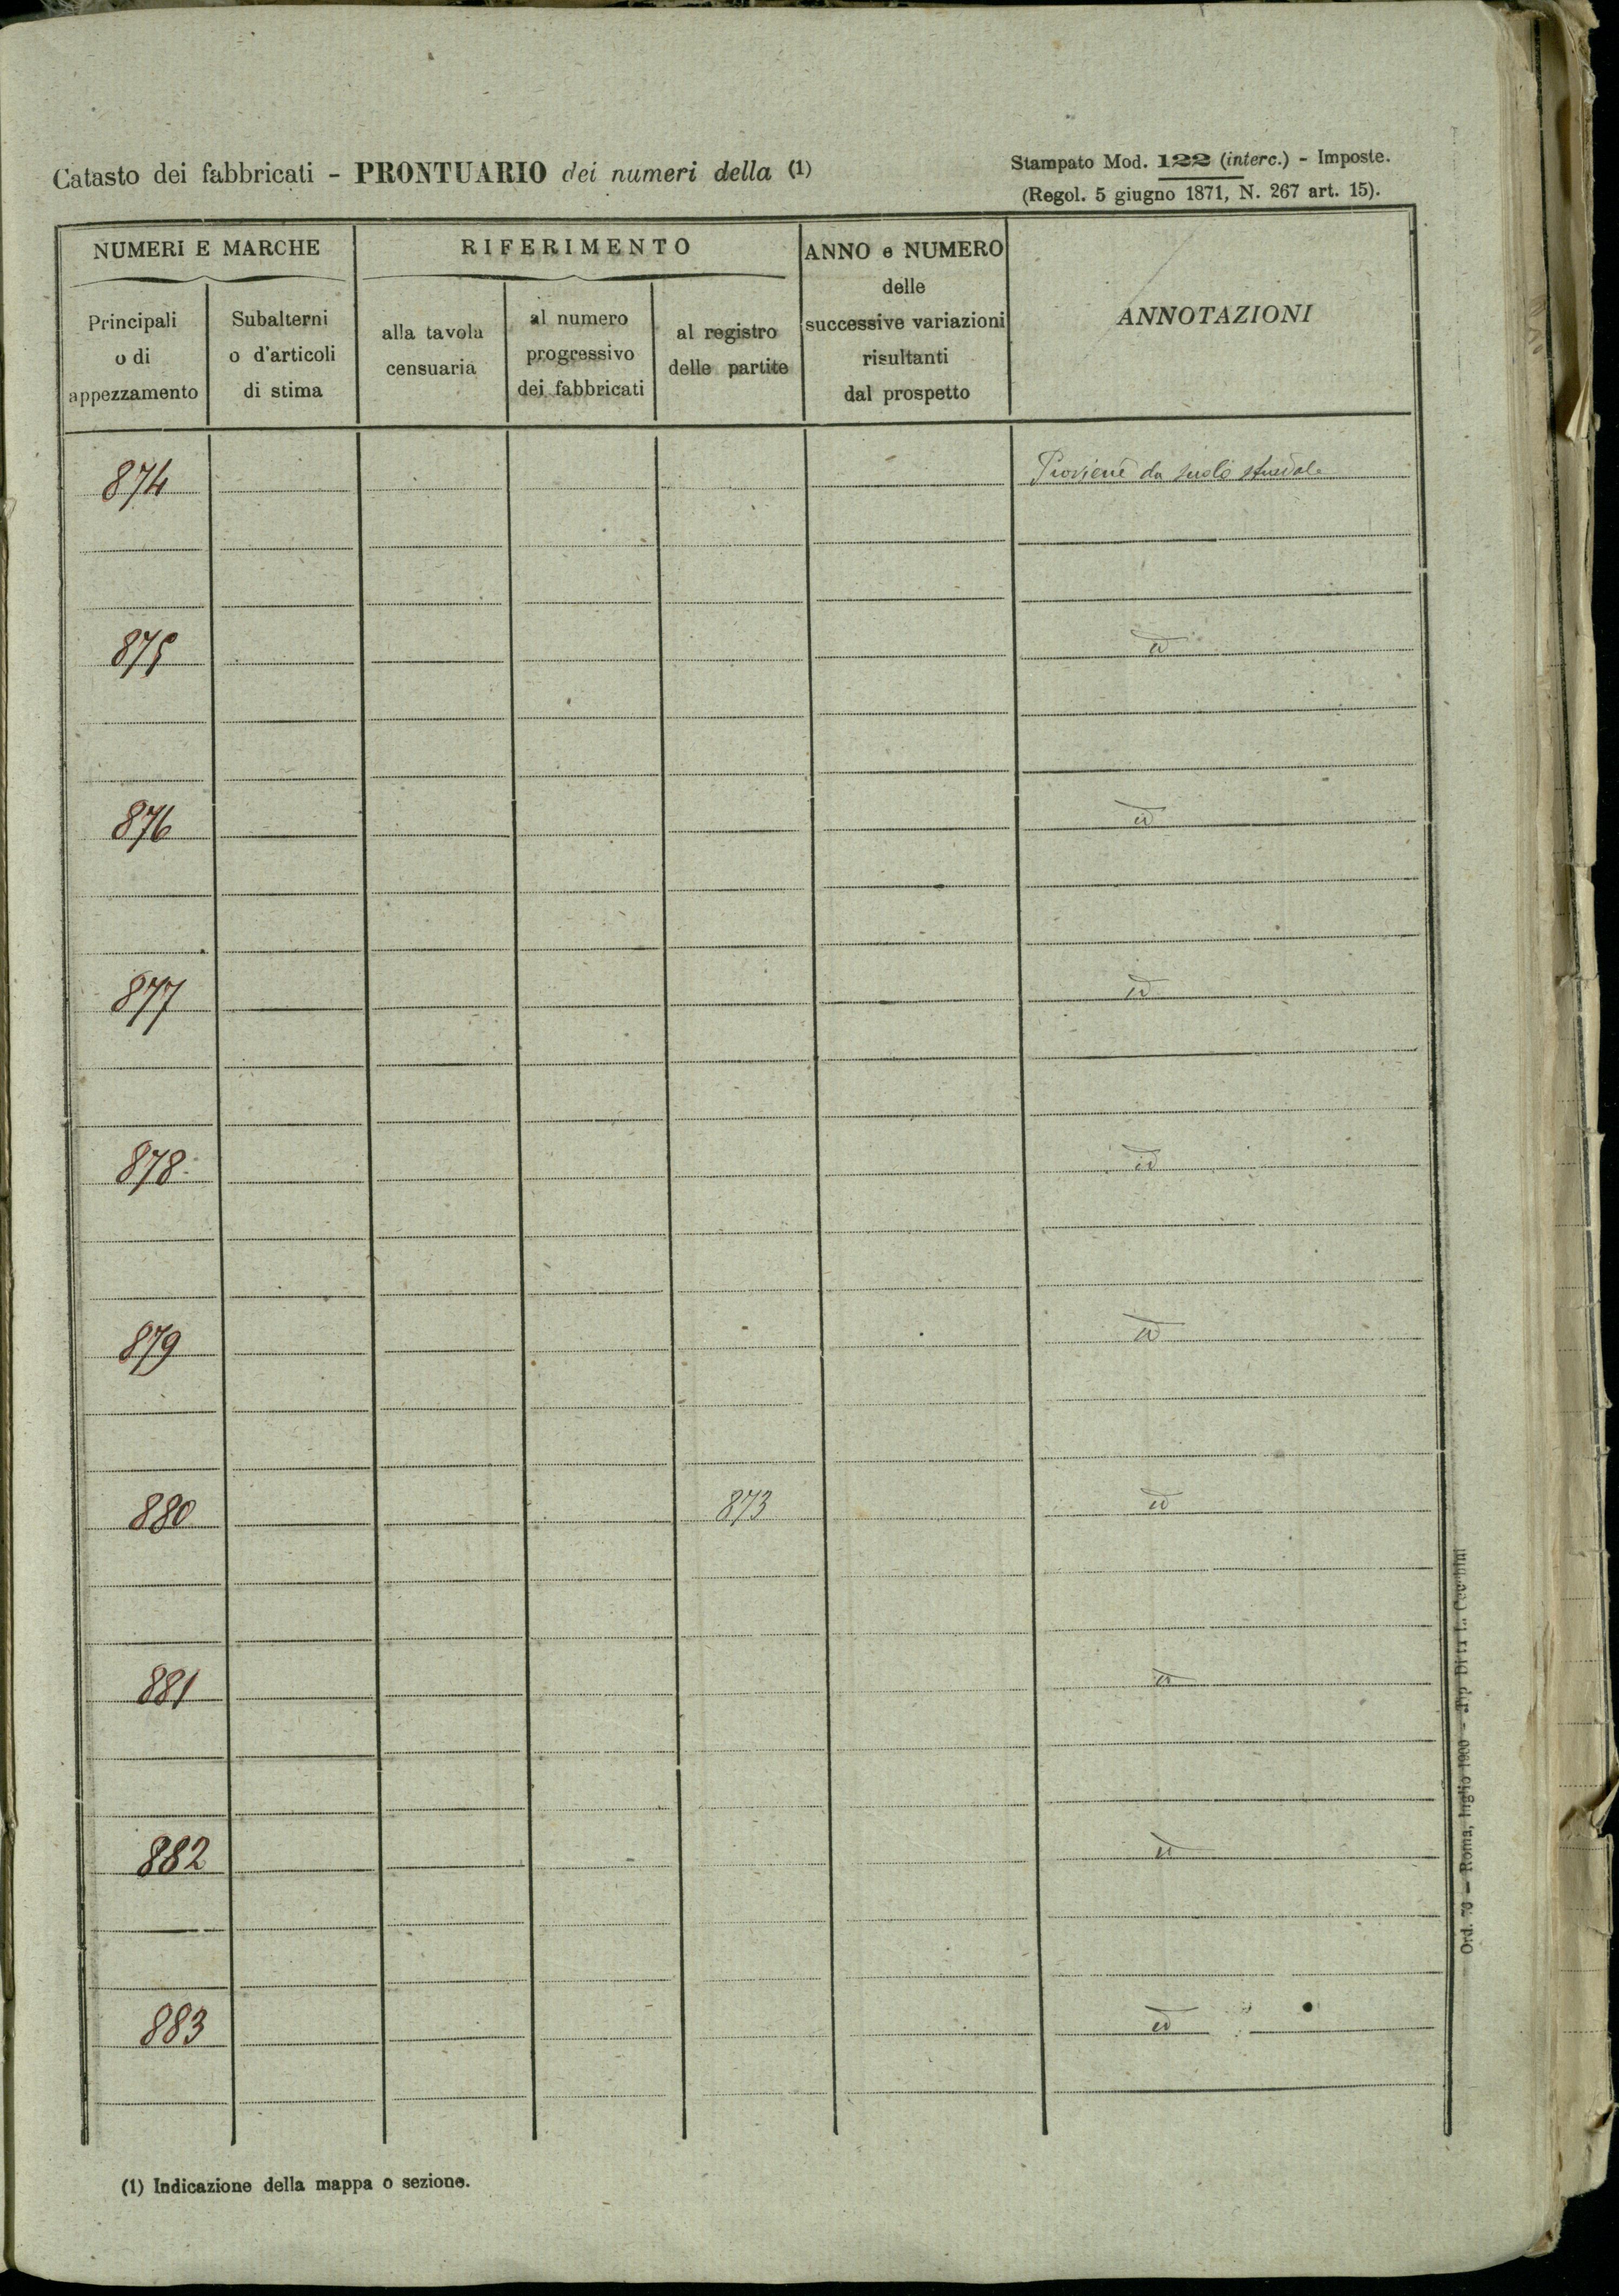 Catasto dei fabbricati - PRONTUARIO dei numeri della (1)
Stampato Mod. 122 (interc.) - Imposte.
(Regol. 5 giugno 1871, N. 267 art. 15).
NUMERI E MARCHE
RIFERIMENTO
ANNO e NUMERO
delle
successive variazioni
risultanti
dal prospetto
ANNOTAZIONI
Principali
o di
appezzamento
Subalterni
o d'articoli
di stima
alla tavola
censuaria
al numero
progressivo
dei fabbricati
al registro
delle partite
874 Proviene da suolo stradale
875 id
876 id
877 id
878 id
879 id
880 873 id
881 id
882 id
883 id
(1) Indicazione della mappa o sezione.
Ord. 70 — Roma, luglio 1900 - Tip. Ditta L. Cecchini